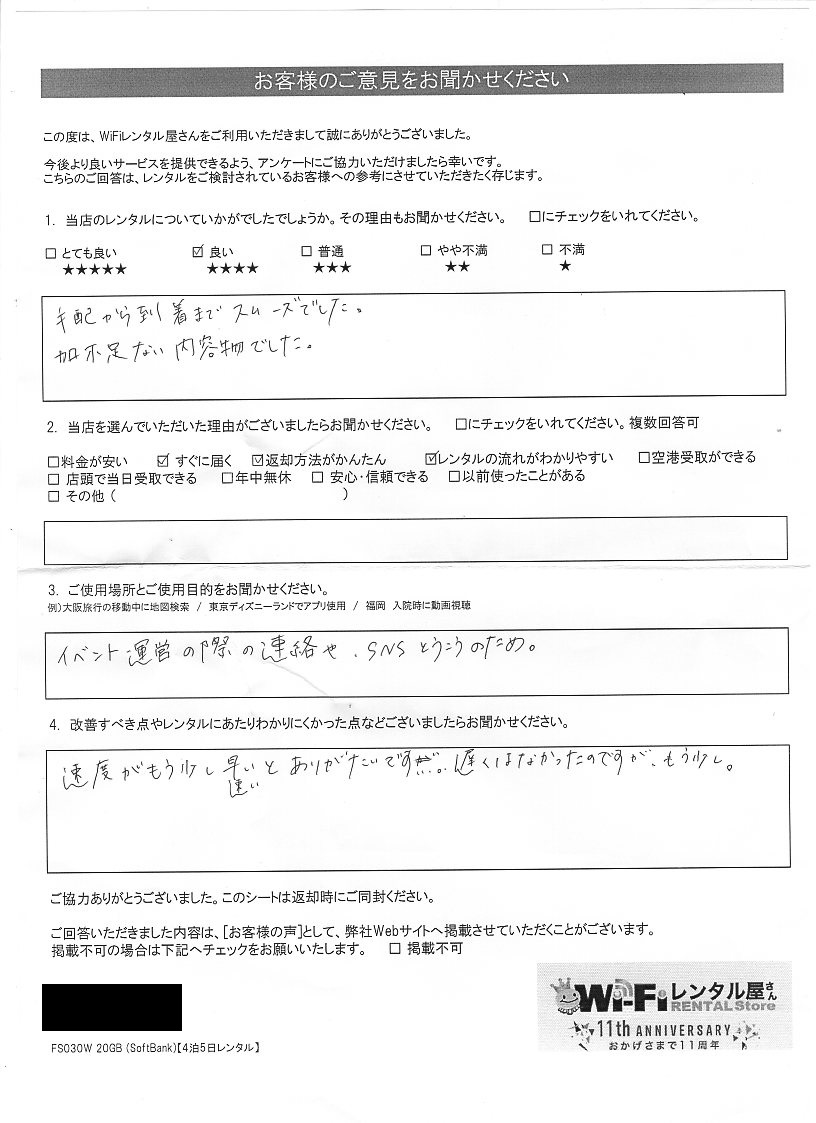 お客様のご意見をお聞かせください
この度は、WiFiレンタル屋さんをご利用いただきまして誠にありがとうございました。
今後より良いサービスを提供できるよう、アンケートにご協力いただけましたら幸いです。
こちらのご回答は、レンタルをご検討されているお客様への参考にさせていただきたく存じます。
1. 当店のレンタルについていかがでしたでしょうか。その理由もお聞かせください。 □にチェックをいれてください。
□ とても良い ☑ 良い □ 普通 □ やや不満 □ 不満
★★★★★ ★★★★ ★★★ ★★ ★
手配から到着までスムーズでした。
加不足ない内容物でした。
2. 当店を選んでいただいた理由がございましたらお聞かせください。 □にチェックをいれてください。複数回答可
□料金が安い ☑ すぐに届く ☑返却方法がかんたん ☑レンタルの流れがわかりやすい □空港受取ができる
□ 店頭で当日受取できる □年中無休 □ 安心・信頼できる □以前使ったことがある
□ その他 ( )
3. ご使用場所とご使用目的をお聞かせください。
例)大阪旅行の移動中に地図検索 / 東京ディズニーランドでアプリ使用 / 福岡 入院時に動画視聴
イベント運営の際の連絡や、SNSとうこうのため。
4. 改善すべき点やレンタルにあたりわかりにくかった点などございましたらお聞かせください。
速度がもう少し早いとありがたいです。遅くはなかったのですが、もう少し。
速い
ご協力ありがとうございました。このシートは返却時にご同封ください。
ご回答いただきました内容は、[お客様の声]として、弊社Webサイトへ掲載させていただくことがございます。
掲載不可の場合は下記へチェックをお願いいたします。 □ 掲載不可
Wi-Fiレンタル屋さん
RENTAL Store
11th ANNIVERSARY
おかげさまで11周年
FS030W 20GB (SoftBank)【4泊5日レンタル】